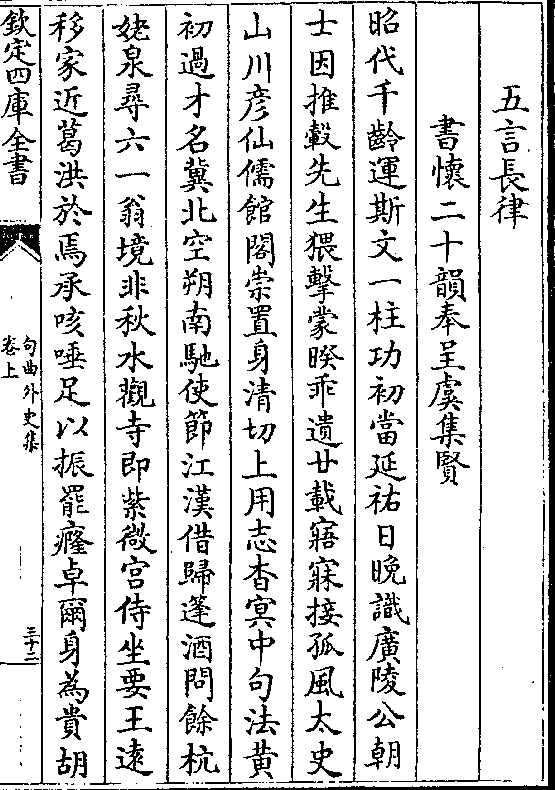 五言長律
書懷二十韻奉呈虞集賢
昭代千齡運斯文一柱功初當延祐日晚識廣陵公朝
士因推轂先生猥擊蒙暌乖遺廿載寤寐接孤風太史
山川彥仙儒館閣崇置身清切上用志杳冥中句法黄
初過才名冀北空朔南馳使節江漢借歸蓬酒問餘杭
姥泉尋六一翁境非秋水觀寺即紫微宮侍坐要王遠
移家近葛洪於焉承咳唾足以振罷癃卓爾身為貴胡
欽定四庫全書
句曲外史集
卷上
三十二